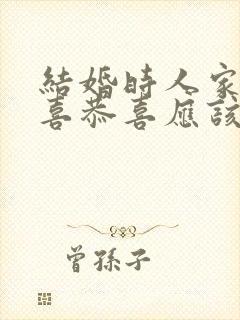 結婚時人家
喜恭喜應該
曾孫子